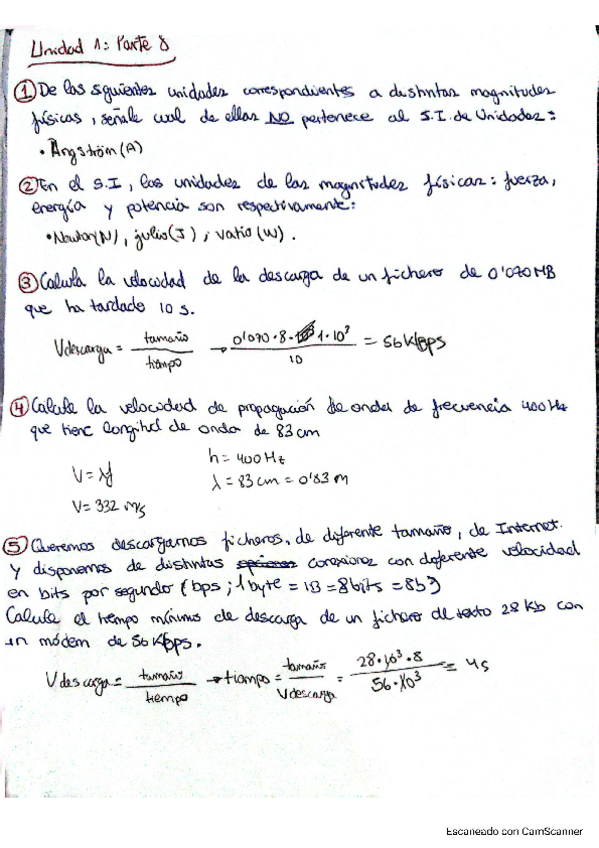 Unidad 1: Parte 8
① De las siguientes unidades correspondientes a distintas magnitudes
físicas, señale cual de ellas NO pertenece al S.I. de Unidades:
• Ångström (A)
② En el S.I, las unidades de las magnitudes físicas: fuerza,
energía y potencia son respectivamente:
• Newton(N), julio(J), vatio (W).
③ Calcula la velocidad de la descarga de un fichero de 0'070 MB
que ha tardado 10 s.
Vdescarga = tamaño / tiempo → 0'070 · 8 · 1 · 10³ / 10 = 56 Kbps
④ Calcule la velocidad de propagación de ondas de frecuencia 400 Hz
que tiene longitud de onda de 83 cm
V = λf
h = 400 Hz
λ = 83 cm = 0'83 m
V = 332 m/s
⑤ Queremos descargarnos ficheros, de diferente tamaño, de Internet.
Y disponemos de distintas conexiones con diferente velocidad
en bits por segundo (bps; 1 byte = 1B = 8 bits = 8b)
Calcule el tiempo mínimo de descarga de un fichero de texto 28 Kb con
un módem de 56 Kbps.
Vdescarga = tamaño / tiempo → tiempo = tamaño / Vdescarga = 28 · 10³ · 8 / 56 · 10³ = 4s
Escaneado con CamScanner